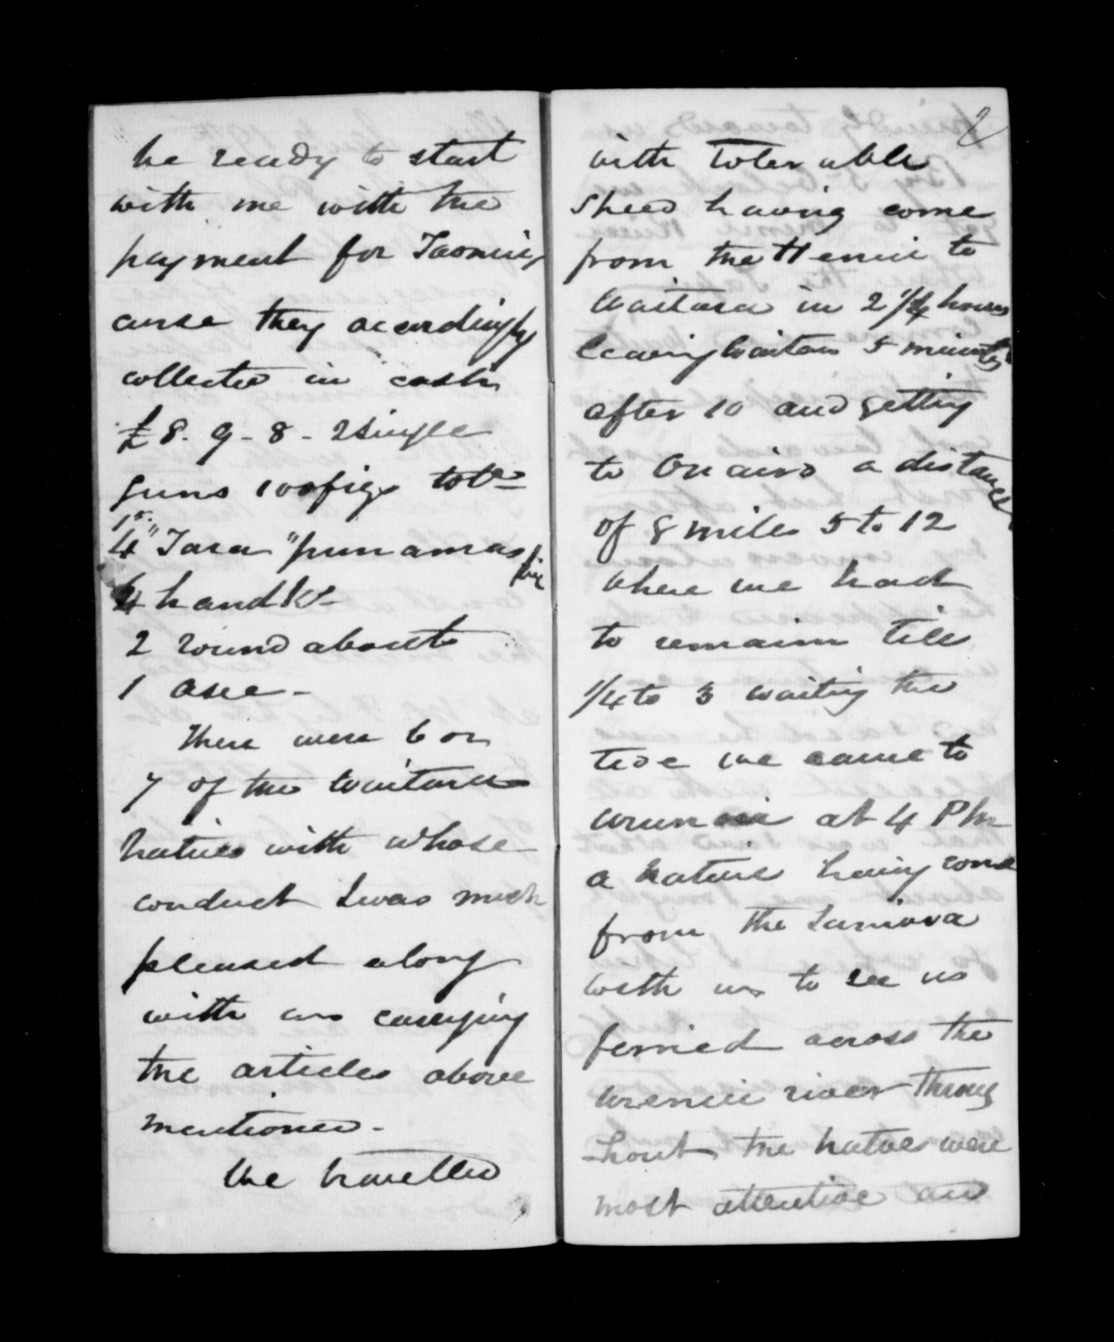 be ready to start
with me with the
payment for
curse they accordingly
collected in cash
£8-9-8- 2 single
guns 100 figs tob
"Tara" punamas
4 handkfs
2 round abouts
1 axe-
There were 6 or
7 of the Waitara
natives with whose
conduct I was much
pleased along
with us carrying
the articles above
mentioned-
We travelled
2
with tolerable
speed having come
from the Henui to
Waitara in 2 1/4 hours
leaving Waitara 5 minutes
after 10 and getting
to Onairo a distance
of 8 miles 5 to 12
where we had
to remain till
1/4 to 3 waiting the
tide we came to
at 4 PM
a native having come
from the
with us to see us
ferried across the
river throug
hout the natves were
most attentive and